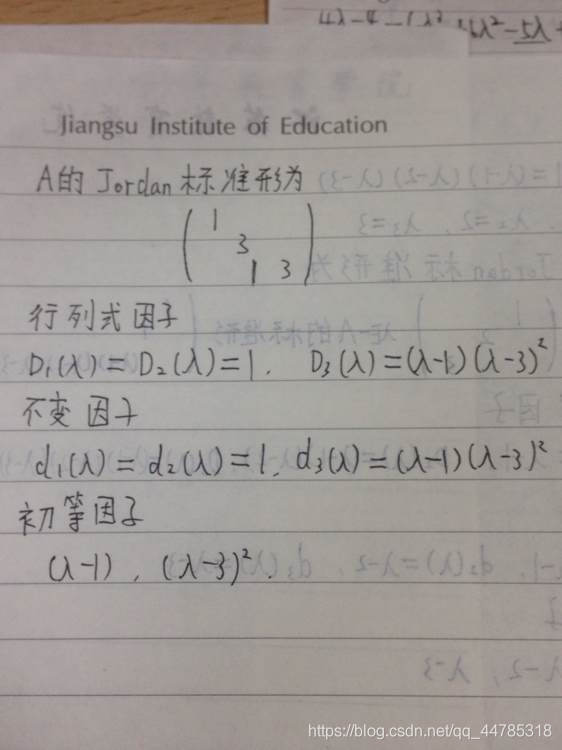 4λ-4
λ²-5λ
Jiangsu Institute of Education
A的 Jordan 标准形为
( 1
3
1 3 )
行列式因子
D₁(λ)=D₂(λ)=1. D₃(λ)=(λ-1)(λ-3)²
不变因子
d₁(λ)=d₂(λ)=1. d₃(λ)=(λ-1)(λ-3)²
初等因子
(λ-1), (λ-3)².
https://blog.csdn.net/qq_44785318